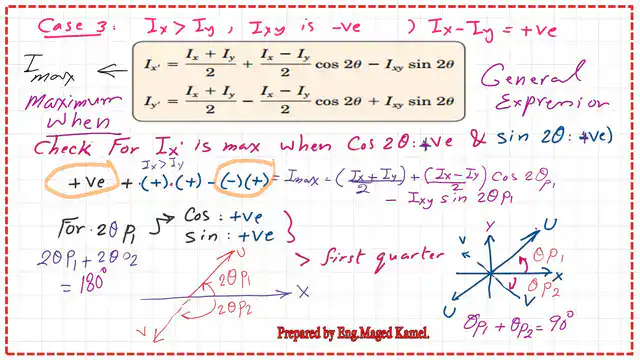 Case 3: Ix > Iy, Ixy is -ve ) Ix-Iy = +ve
Imax ←
Ix' = Ix + Iy / 2 + Ix − Iy / 2 cos 2θ − Ixy sin 2θ
Iy' = Ix + Iy / 2 − Ix − Iy / 2 cos 2θ + Ixy sin 2θ
General
Expression
Maximum
When
Check For Ix' is max when Cos 2θ: +ve & sin 2θ: +ve)
Ix>Iy
+ve + (+).(+) - (-)(+) = Imax = (Ix+Iy / 2) + (Ix-Iy / 2) Cos 2θp1
- Ixy sin 2θp1
For 2θp1 → Cos : +ve
sin : +ve } > first quarter
2θp1 + 2θp2
= 180°
U
2θp1
X
2θp2
V
Y
U
V
θp1
X
θp2
U
V
θp1 + θp2 = 90°
Prepared by Eng.Maged Kamel.